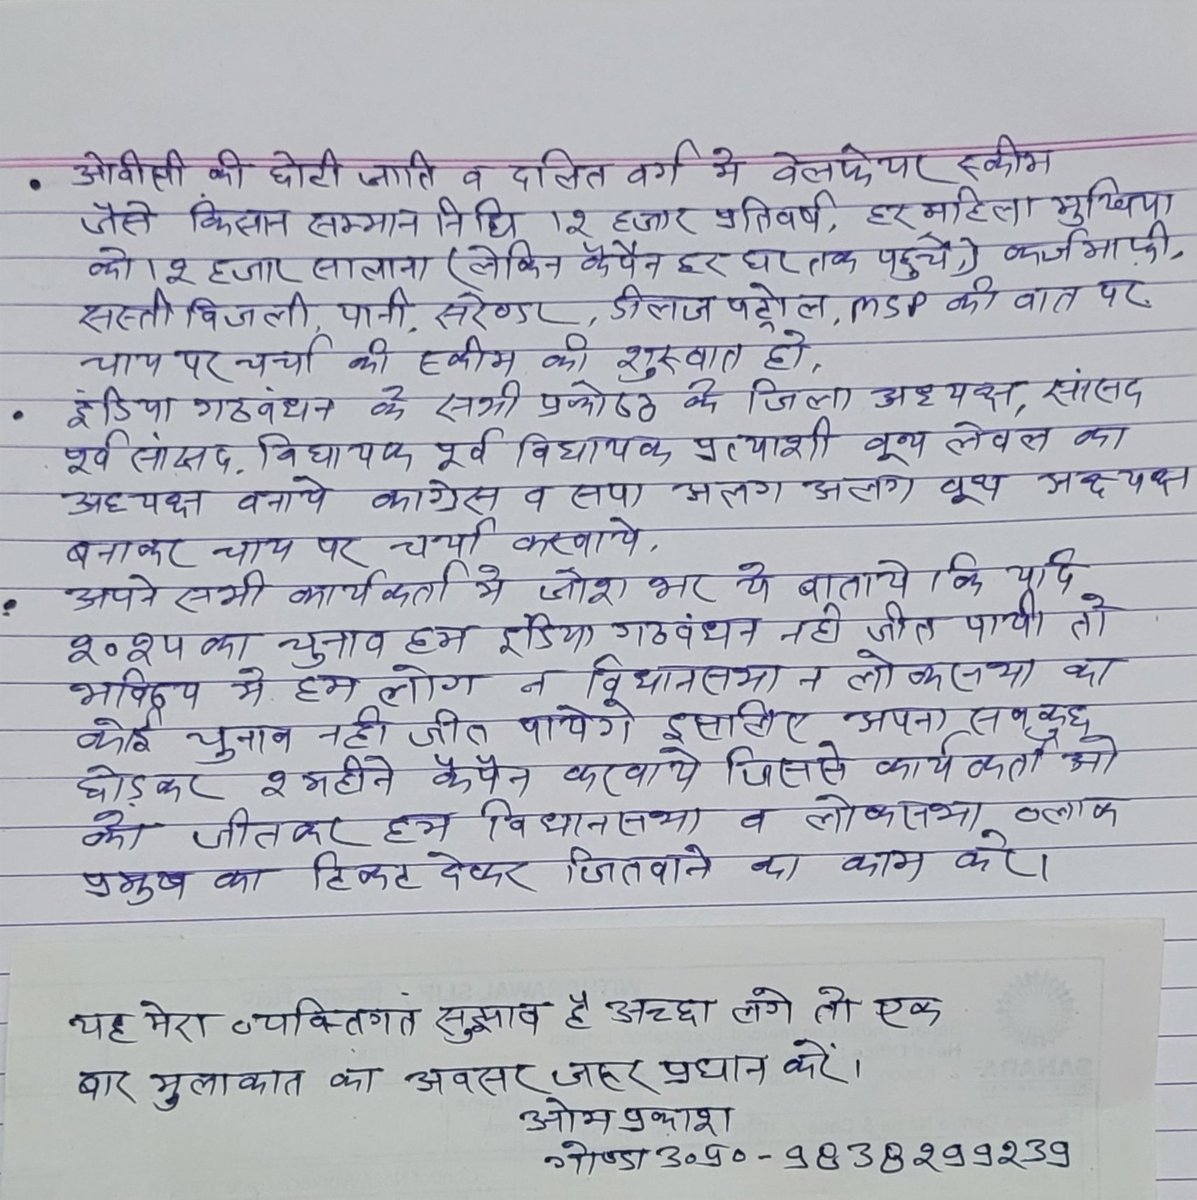 • ओबीसी की छोटी जाति व दलित वर्ग मे वेलफेयर स्कीम
जैसे किसान सम्मान निधि १२ हजार प्रतिवर्ष, हर महिला मुखिया
को १२ हजार सालाना (लेकिन कैपैन हर घर तक पहुचे,) कर्जमाफी,
सस्ती बिजली, पानी, सरेण्डर, डीलज पट्रोल, MSP की बात पर
चाय पर चर्चा की स्कीम की शुरुवात हो,
• इंडिया गठबंधन के सभी प्रकोष्ठ के जिला अध्यक्ष, सांसद
पूर्व सांसद, विधायक पूर्व विधायक प्रत्याशी बूथ लेवल का
अध्यक्ष बनाये कांग्रेस व सपा अलग अलग बूथ अध्यक्ष
बनाकर चाय पर चर्चा करवाये,
• अपने सभी कार्यकर्ता मे जोश भर ये बाताये कि यदि
२०२५ का चुनाव हम इंडिया गठबंधन नही जीत पायी तो
भविष्य मे हम लोग न विधानसभा न लोकसभा का
कोई चुनाव नही जीत पायेगे इसलिए अपना सबकुछ
छोड़कर २ महीने कैपैन करवाये जिससे कार्यकर्ता ओ
को जीतकर हम विधानसभा व लोकसभा ब्लाक
प्रमुख का टिकट देकर जितवाने का काम करे।
यह मेरा व्यक्तिगत सुझाव है अच्छा लगे तो एक
बार मुलाकात का अवसर जरूर प्रधान करें।
ओम प्रकाश
गोण्डा उ०प्र० - 9838299239